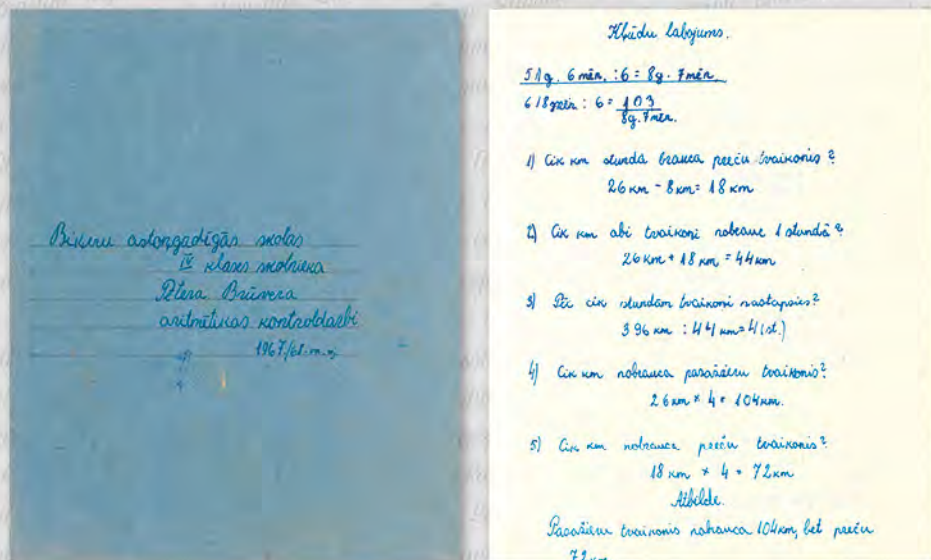 Biķeru astoņgadīgās skolas
IV klases skolnieka
Pētera Brūvera
aritmētikas kontroldarbi
1967./68. m. g.
Kļūdu labojums.
51g. 6 mēn. : 6 = 8g. 7 mēn.
618 mēn : 6 = 103
8g. 7 mēn.
1) Cik km stundā brauca preču tvaikonis?
26 km - 8 km = 18 km
2) Cik km abi tvaikoņi nobrauc 1 stundā?
26 km + 18 km = 44 km
3) Pēc cik stundām tvaikoņi sastapsies?
396 km : 44 km = 4 (st.)
4) Cik km nobrauca pasažieru tvaikonis?
26 km × 4 = 104 km.
5) Cik km nobrauca preču tvaikonis?
18 km × 4 = 72 km
Atbilde.
Pasažieru tvaikonis nobrauca 104 km, bet preču
72 km